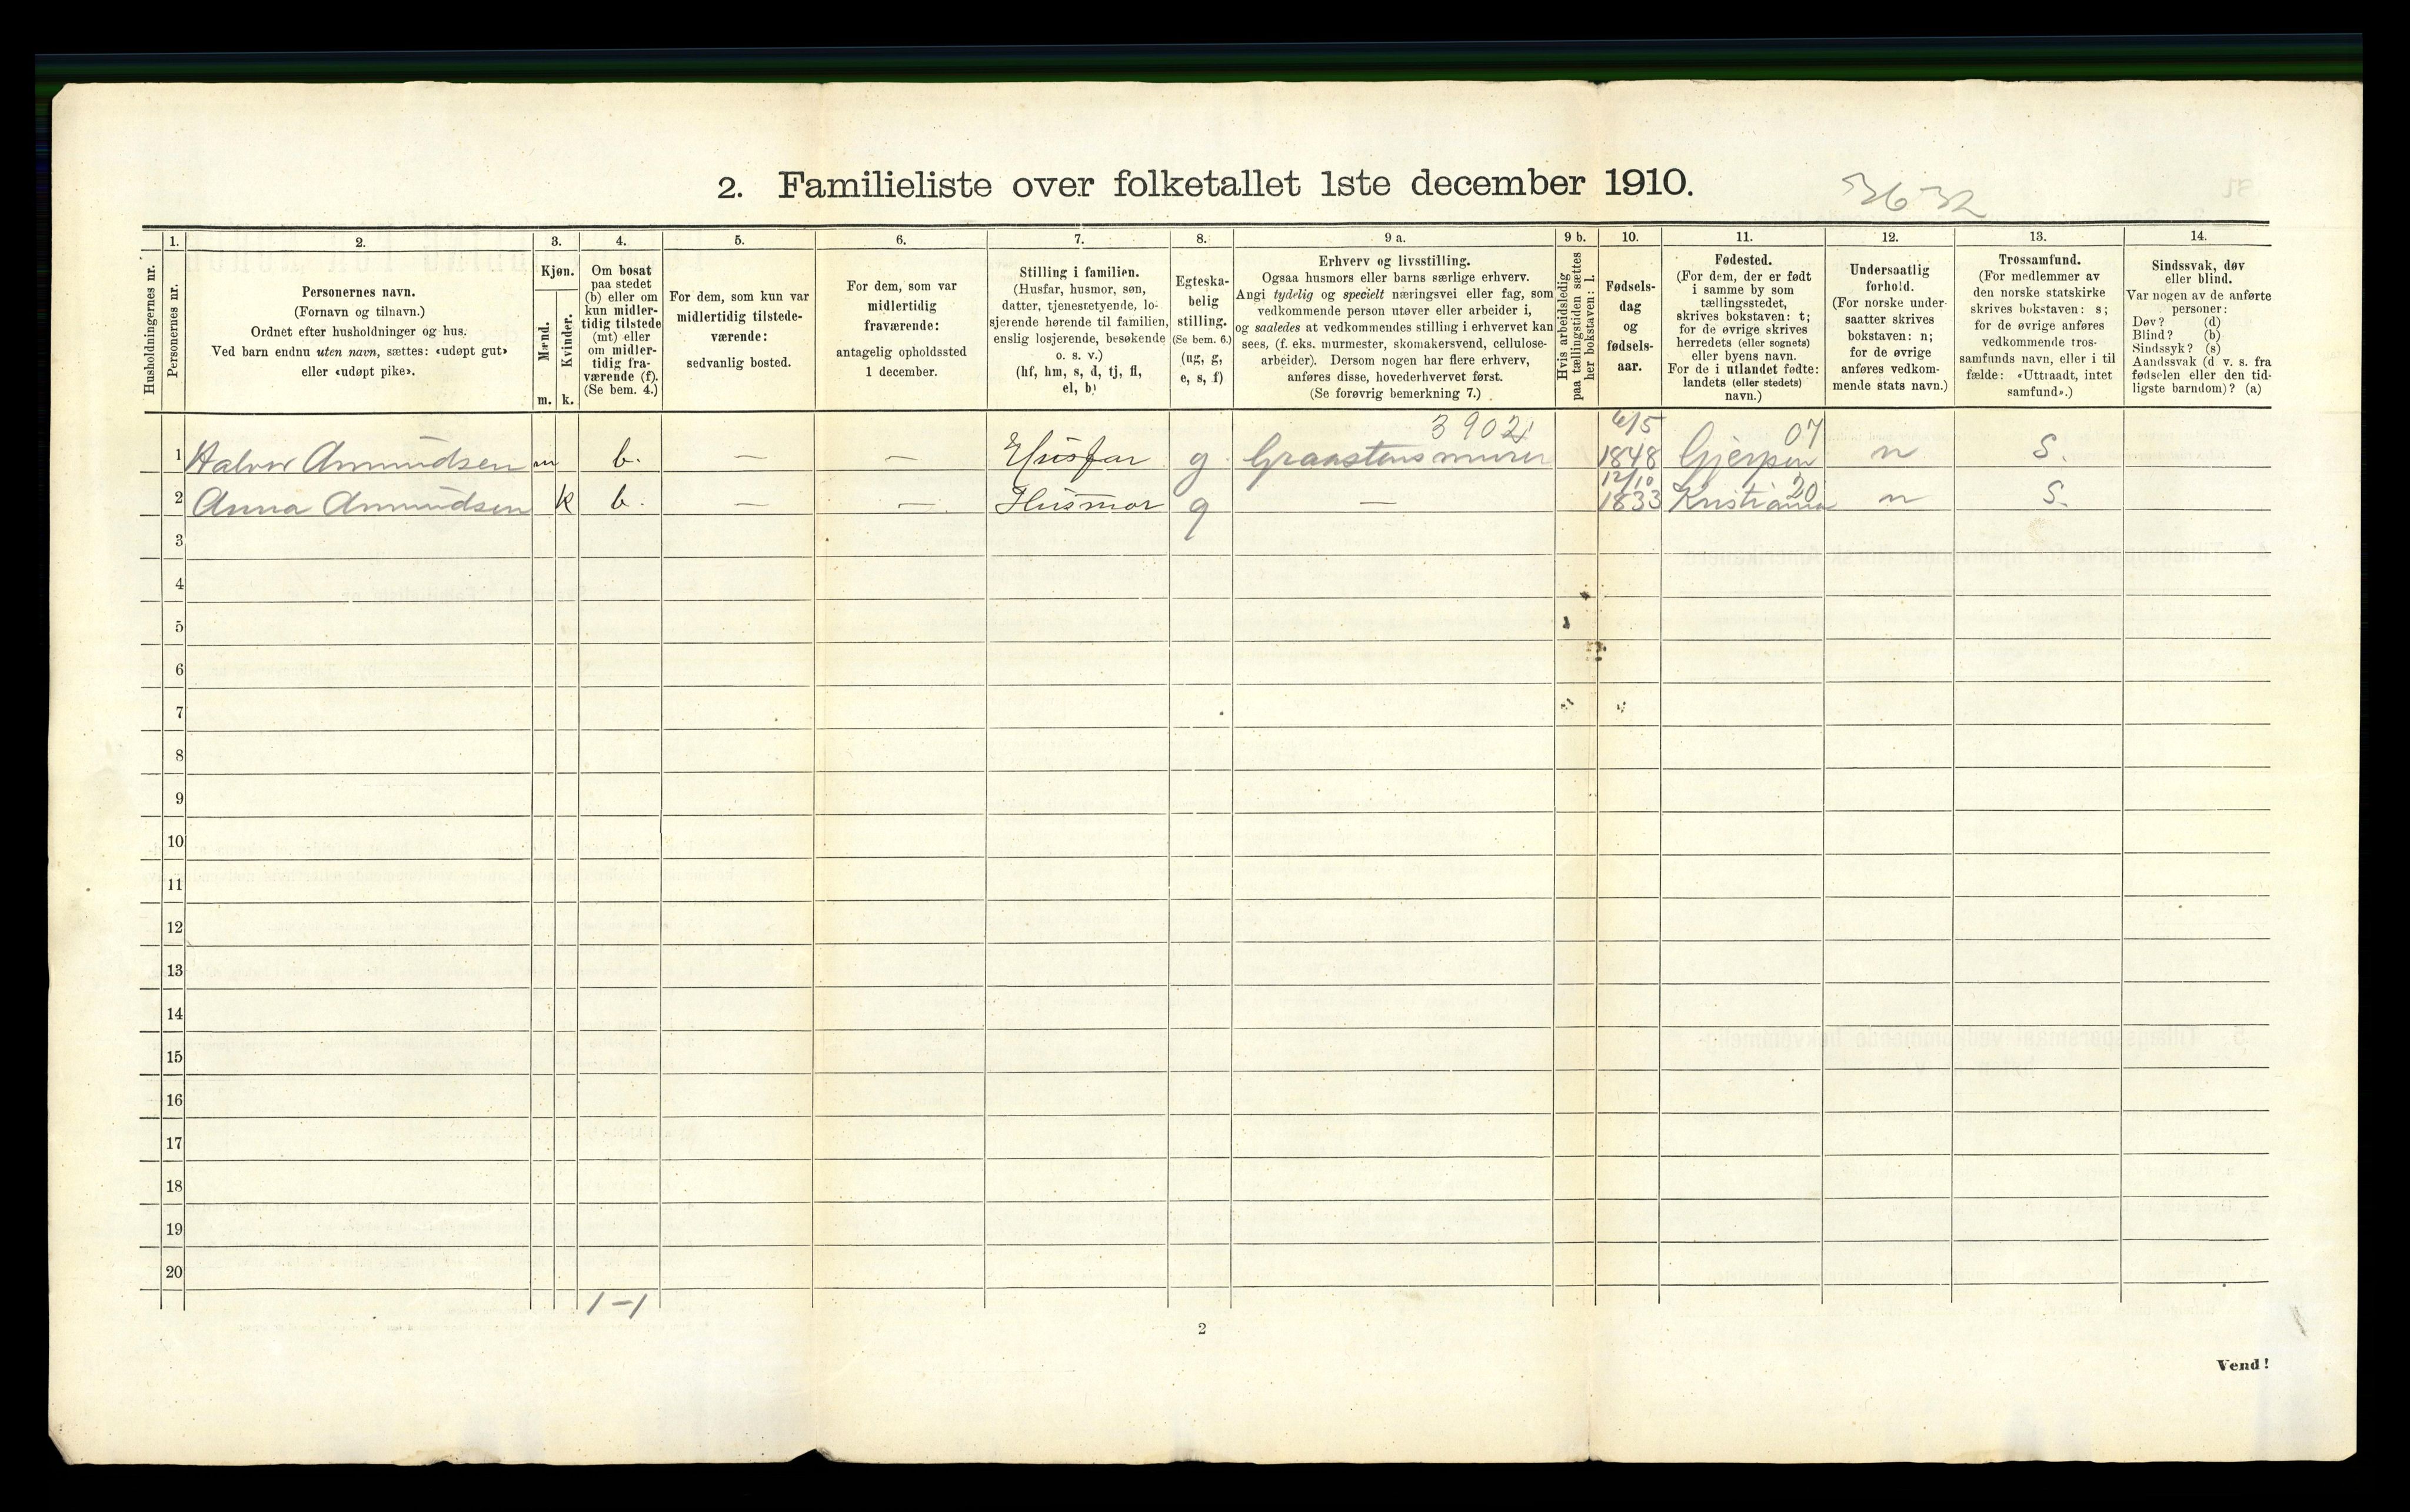 2. Familieliste over folketallet 1ste december 1910.
3632
Husholdningernes nr.
1.
Personernes nr.
2.
Personernes navn.
(Fornavn og tilnavn.)
Ordnet efter husholdninger og hus.
Ved barn endnu uten navn, sættes: «udøpt gut»
eller «udøpt pike».
3.
Kjøn.
Mænd.
Kvinder.
m. k.
4.
Om bosat
paa stedet
(b) eller om
kun midler-
tidig tilstede
(mt) eller
om midler-
tidig fra-
værende (f).
(Se bem. 4.)
5.
For dem, som kun var
midlertidig tilstede-
værende:
sedvanlig bosted.
6.
For dem, som var
midlertidig
fraværende:
antagelig opholdssted
1 december.
7.
Stilling i familien.
(Husfar, husmor, søn,
datter, tjenestetyende, lo-
sjerende hørende til familien,
enslig losjerende, besøkende
o. s. v.)
(hf, hm, s, d, tj, fl,
el, b)
8.
Egteska-
belig
stilling.
(Se bem. 6.)
(ug, g,
e, s, f)
9 a.
Erhverv og livsstilling.
Ogsaa husmors eller barns særlige erhverv.
Angi tydelig og specielt næringsvei eller fag, som
vedkommende person utøver eller arbeider i,
og saaledes at vedkommendes stilling i erhvervet kan
sees, (f. eks. murmester, skomakersvend, cellulose-
arbeider). Dersom nogen har flere erhverv,
anføres disse, hovederhvervet først.
(Se forøvrig bemerkning 7.)
9 b.
Hvis arbeidsledig
paa tællingstiden sættes
her bokstaven: l.
10.
Fødsels-
dag
og
fødsels-
aar.
11.
Fødested.
(For dem, der er født
i samme by som
tællingsstedet,
skrives bokstaven: t;
for de øvrige skrives
herredets (eller sognets)
eller byens navn.
For de i utlandet fødte:
landets (eller stedets)
navn.)
12.
Undersaatlig
forhold.
(For norske under-
saatter skrives
bokstaven: n;
for de øvrige
anføres vedkom-
mende stats navn.)
13.
Trossamfund.
(For medlemmer av
den norske statskirke
skrives bokstaven: s;
for de øvrige anføres
vedkommende tros-
samfunds navn, eller i til
fælde: «Uttraadt, intet
samfund».)
14.
Sindssvak, døv
eller blind.
Var nogen av de anførte
personer:
Døv? (d)
Blind? (b)
Sindssyk? (s)
Aandssvak (d. v. s. fra
fødselen eller den tid-
ligste barndom)? (a)
3902 6/5 07
1 Halvor Amundsen m b. — — Husfar g Graastensmurer 1848 Gjerpen n S.
12/10 20
2 Anna Amundsen k b. — — Husmor g — 1833 Kristiania n S.
3
4
5
6
7
8
9
10
11
12
13
14
15
16
17
18
19
20
1 — 1
2
Vend!